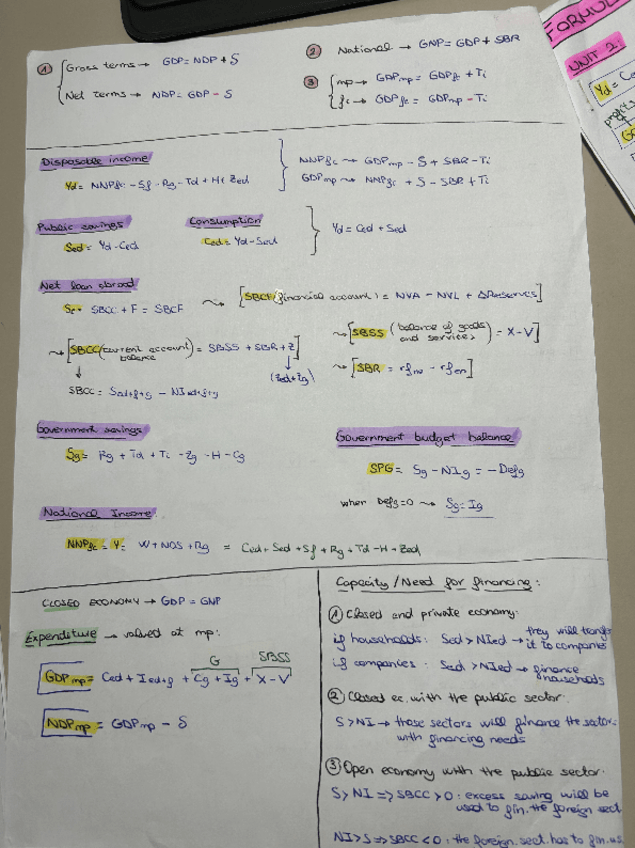 ① Gross terms → GDP = NDP + δ
Net terms → NDP = GDP - δ
② National → GNP = GDP + SBR
③ mp → GDPmp = GDPfc + Ti
fc → GDPfc = GDPmp - Ti
Disposable income
Yd = NNPfc - Sf - Rg - Td + H + Zed
NNPfc → GDPmp - δ + SBR - Ti
GDPmp → NNPfc + δ - SBR + Ti
Public savings
Sed = Yd - Ced
Consumption
Ced = Yd - Sed
Yd = Ced + Sed
Net loan abroad
SBCC + F = SBCF
→ [SBCF (financial account) = NVA - NVL + ΔReserves]
→ [SBCC (current account balance) = SBSS + SBR + Z]
(Zed + Zg)
SBCC = Sed+f+g - NIed+f+g
→ [SBSS (balance of goods and services) = X - V]
→ [SBR = rfnr - rfen]
Government savings
Sg = Rg + Td + Ti - Zg - H - Cg
Government budget balance
SPG = Sg - NIg = - Defg
when Defg = 0 → Sg = Ig
National Income
NNPfc = Y = W + NOS + Rg = Ced + Sed + Sf + Rg + Td - H - Zed
CLOSED ECONOMY → GDP = GNP
Expenditure → valued at mp:
G SBSS
GDPmp = Ced + Ied+f + Cg + Ig + X - V
NDPmp = GDPmp - δ
Capacity / Need for financing:
① Closed and private economy:
if households: Sed > NIed → they will transf
it to companies
if companies: Sed > NIed → finance
households
② Closed ec. with the public sector:
S > NI → those sectors will finance the sector
with financing needs
③ Open economy with the public sector:
S > NI => SBCC > 0: excess saving will be
used to fin. the foreign sect
NI > S => SBCC < 0: the foreign sect. has to fin. us
FORMUL
UNIT 2:
Yd = Ce